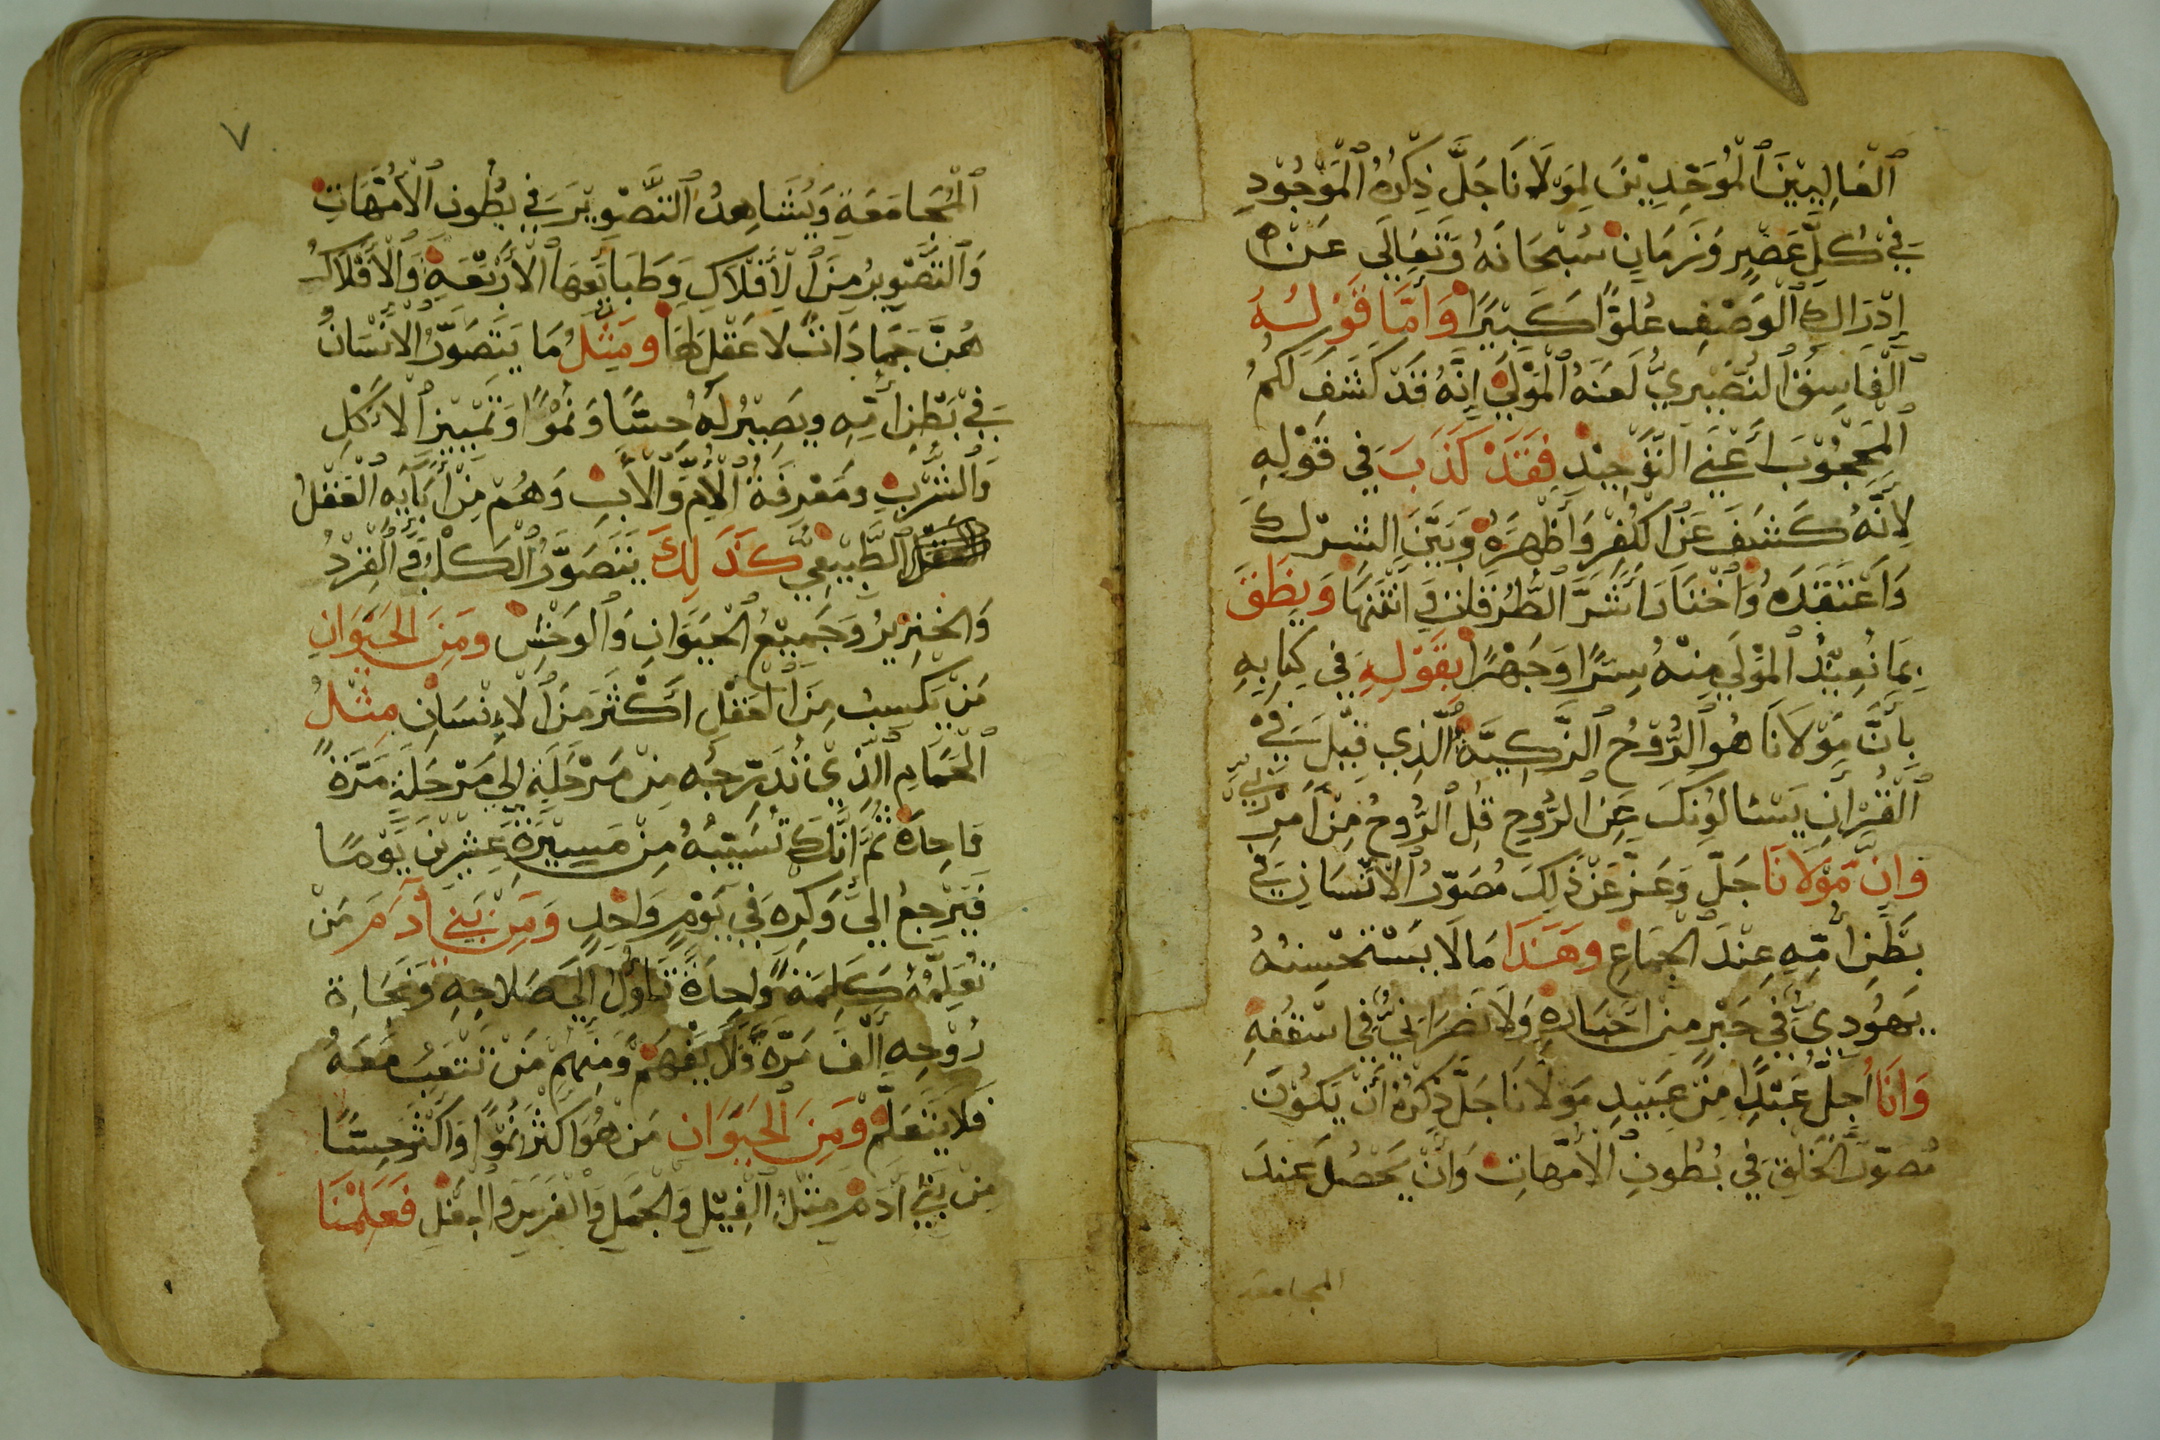 ٱلْعَالِيِينَ ٱلْمُوَحِّدِيْنَ لِمَوْلَانَا جَلَّ ذِكْرُهُ ٱلْمَوْجُوْدِ
فِي كُلِّ عَصْرٍ وَزَمَانٍ سُبْحَانَهُ وَتَعَالَى عَنْ
إِدْرَاكِ ٱلْوَصْفِ عُلُوًّا كَبِيْرًا وَأَمَّا قَوْلُهُ
ٱلْفَاسِقُ ٱلنُّصَيْرِيُّ لَعَنَهُ ٱلْمَوْلَى إِنَّهُ قَدْ كَشَفَ لَكُمُ
ٱلْمَحْجُوْبَ أَعْنِي التَّوْحِيْدَ فَقَدْ كَذَبَ فِي قَوْلِهِ
لِأَنَّهُ كَشَفَ عَنِ ٱلْكُفْرِ وَأَظْهَرَهُ وَبَيَّنَ الشِّرْكَ
وَٱعْتَقَدَهُ وَٱخْتَارَ أَشَرَّ ٱلطُّرُقَاتِ وَأَنْتَنَهَا وَنَطَقَ
بِمَا نُعِيْذُ ٱلْمَوْلَى مِنْهُ سِرًّا وَجَهْرًا بِقَوْلِهِ فِي كِتَابِهِ
بِأَنَّ مَوْلَانَا هُوَ ٱلرُّوْحُ ٱلزَّكِيَّةُ الَّذِي قِيْلَ فِي
ٱلْقُرْآنِ يَسْئَالُوْنَكَ عَنِ ٱلرُّوْحِ قُلِ ٱلرُّوْحُ مِنْ أَمْرِ رَبِّي
وَإِنَّ مَوْلَانَا جَلَّ وَعَزَّ عَنْ ذَلِكَ مُصَوِّرُ ٱلْإِنْسَانِ فِي
بَطْنِ أُمِّهِ عِنْدَ ٱلْجِمَاعِ وَهَذَا مَا لَا يَسْتَحْسِنُهُ
يَهُوْدِيٌّ فِي حَبْرٍ مِنْ أَحْبَارِهِ وَلَا نَصْرَانِيٌّ فِي اسْقُفِهِ
وَأَنَا أُجِلُّ عَبْدًا مِنْ عَبِيْدِ مَوْلَانَا جَلَّ ذِكْرُهُ أَنْ يَكُوْنَ
مُصَوِّرَ ٱلْخَلْقِ فِي بُطُونِ ٱلْأُمَّهَاتِ وَأَنْ يَحْصُلَ عِنْدَ
المجامعة
٧
ٱلْمُجَامَعَةِ وَيُشَاهِدُ ٱلتَّصْوِيْرَ فِي بُطُونِ ٱلْأُمَّهَاتِ
وَٱلتَّصْوِيْرُ مِنَ ٱلْأَفْلَاكِ وَطَبَائِعِهَا ٱلْأَرْبَعَةِ وَٱلْأَفْلَاكُ
هُنَّ جَمَادَاتٌ لَا عَقْلَ لَهَا وَمِثْلُ مَا يَتَصَوَّرُ ٱلْإِنْسَانُ
فِي بَطْنِ أُمِّهِ وَيَصِيْرُ لَهُ حِسًّا وَنُمُوًّا وَتَمْيِيْزَ ٱلْأَكْلِ
وَٱلشُّرْبِ وَمَعْرِفَةَ ٱلْأُمِّ وَٱلْأَبِ وَهُمْ مِنْ ٱلْعَقْلِ
ٱلطَّبِيْعِيِّ كَذَلِكَ يَتَصَوَّرُ ٱلْكَلْبُ وَٱلْقِرْدُ
وَٱلْخِنْزِيْرُ وَجَمِيْعُ ٱلْحَيَوَانِ وَٱلْوَحْشِ وَمِنَ ٱلْحَيَوَانِ
مَنْ يَكْسِبُ مِنَ ٱلْعَقْلِ أَكْثَرَ مِنَ ٱلْإِنْسَانِ مِثْلُ
ٱلْحَمَامِ ٱلَّذِي تُدَرِّجُهُ مِنْ مَرْحَلَةٍ إِلَى مَرْحَلَةٍ مَرَّةً
وَاحِدَةً ثُمَّ إِنَّكَ تُسَيِّبُهُ مِنْ مَسِيْرَةِ عِشْرِيْنَ يَوْمًا
فَيَرْجِعُ إِلَى وَكْرِهِ فِي يَوْمٍ وَاحِدٍ وَمِنْ بَنِي آدَمَ مَنْ
تُعَلِّمُهُ كَلِمَةً وَاحِدَةً تَأَوَّلُ إِلَى صَلَاحِهِ وَنَجَاةِ
رُوْحِهِ أَلْفَ مَرَّةٍ فَلَا يَفْهَمُ وَمِنْهُمْ مَنْ تَتْعَبُ مَعَهُ
فَلَا يَتَعَلَّمُ وَمِنَ ٱلْحَيَوَانِ مَنْ هُوَ أَكْثَرُ نُمُوًّا وَأَكْثَرُ حِسًّا
مِنْ بَنِي آدَمَ مِثْلُ ٱلْفِيْلِ وَٱلْجَمَلِ وَٱلْفَرَسِ وَٱلْبَغْلِ فَعَلِمْنَا